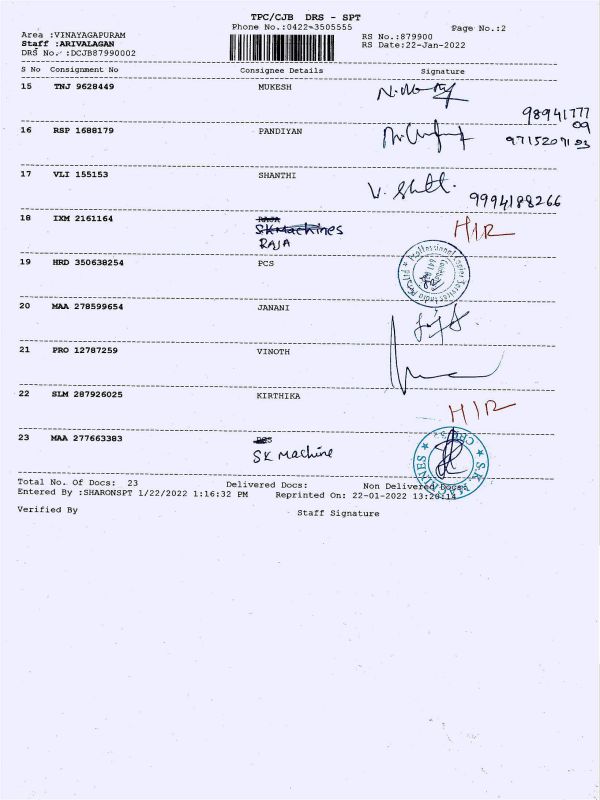 TPC/CJB DRS - SPT
Phone No.:0422-3505555
Page No.:2
Area :VINAYAGAPURAM
Staff :ARIVALAGAN
DRS No.:DCJB87990002
RS No.:879900
RS Date:22-Jan-2022
S No Consignment No Consignee Details Signature
15 TNJ 9628449 MUKESH
98941777
09
16 RSP 1688179 PANDIYAN
9715207193
17 VLI 155153 SHANTHI
9994188266
18 IXM 2161164 RAJA
S.K Machines
RAJA
HIR
19 HRD 350638254 PCS
20 MAA 278599654 JANANI
21 PRO 12787259 VINOTH
22 SLM 287926025 KIRTHIKA
HIR
23 MAA 277663383 PCS
SK Machine
S.K. MACHINES
Total No. Of Docs: 23 Delivered Docs: Non Delivered Docs:
Entered By :SHARONSPT 1/22/2022 1:16:32 PM Reprinted On: 22-01-2022 13:20:14
Verified By Staff Signature